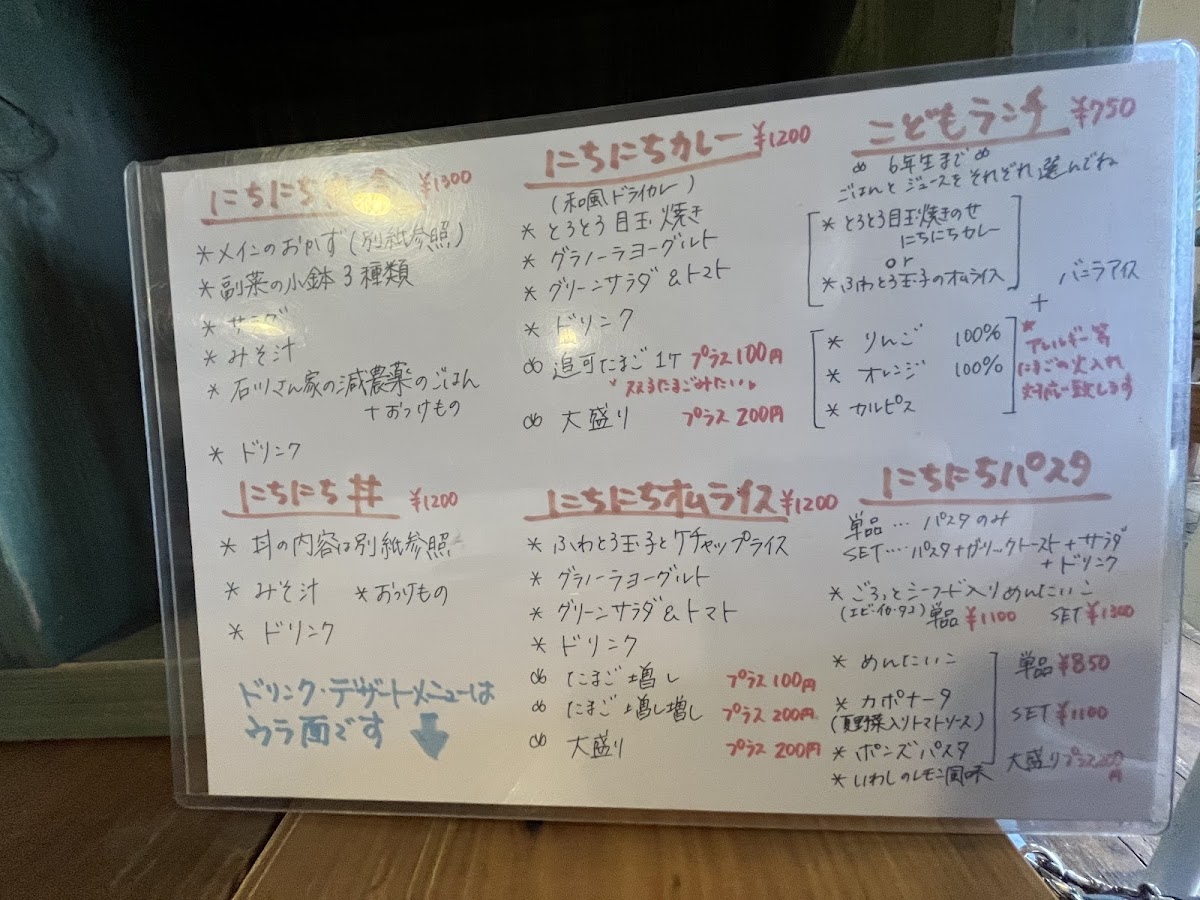 にちにち ¥1300
*メインのおかず(別紙参照)
*副菜の小鉢3種類
*サラダ
*みそ汁
*石川さん家の減農薬のごはん
+おつけもの
*ドリンク
にちにちカレー ¥1200
(和風ドライカレー)
*とろとろ目玉焼き
*グラノーラヨーグルト
*グリーンサラダ&トマト
*ドリンク
追可たまご1ケ プラス100円
大盛り プラス200円
こどもランチ ¥750
6年生まで
ごはんとジュースをそれぞれ選んでね
*とろとろ目玉焼きのせ
にちにちカレー
or
*ふわとろ玉子のオムライス
バニラアイス
+
*りんご 100%
*オレンジ 100%
*カルピス
*アレルギー等
たまごの火入れ
対応致します
にちにち丼 ¥1200
*丼の内容は別紙参照
*みそ汁 *おつけもの
*ドリンク
ドリンク・デザートメニューは
ウラ面です
にちにちオムライス ¥1200
*ふわとろ玉子とケチャップライス
*グラノーラヨーグルト
*グリーンサラダ&トマト
*ドリンク
たまご増し プラス100円
たまご増し増し プラス200円
大盛り プラス200円
にちにちパスタ
単品…パスタのみ
SET…パスタ+ガーリックトースト+サラダ
+ドリンク
*ごろっとシーフード入りめんたいこ
(エビ・イカ・タコ) 単品 ¥1100 SET ¥1300
*めんたいこ 単品 ¥850
*カポナータ
(夏野菜入りトマトソース) SET ¥1100
*ポンズパスタ 大盛りプラス200円
*いわしのレモン風味